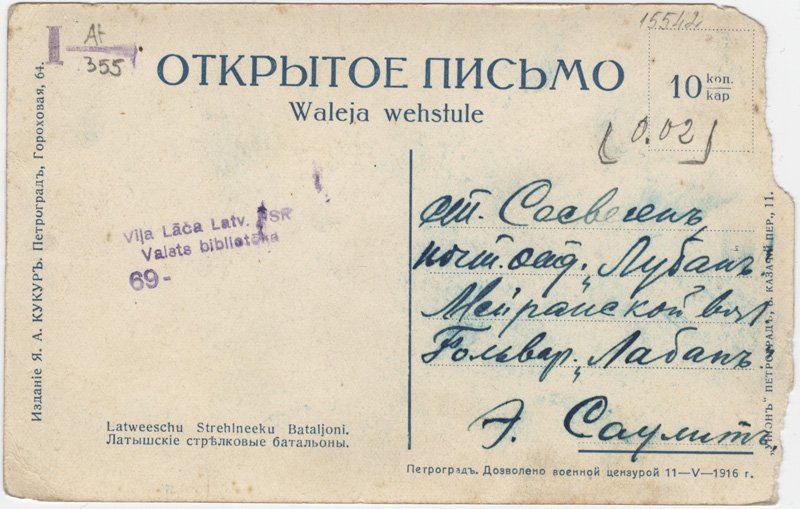 15542
I At
355
ОТКРЫТОЕ ПИСЬМО
Waleja wehstule
10 коп.
kap
(0.02)
Viļa Lāča Latv. PSR
Valsts bibliotēka
69-
ст. Сесвегенъ
почт. отд. „Лубанъ
Мейранской вол.
Фольвар. „Лабанъ
Э. Саулитъ,
Latweeschu Strehlneeku Bataljoni.
Латышскіе стрѣлковые батальоны.
Петроградъ. Дозволено военной цензурой 11—V—1916 г.
Изданіе Я. А. КУКУРЪ. Петроградъ, Гороховая, 64.
„УНІОНЪ“ ПЕТРОГРАДЪ, Б. КАЗАЧІЙ ПЕР., 11.